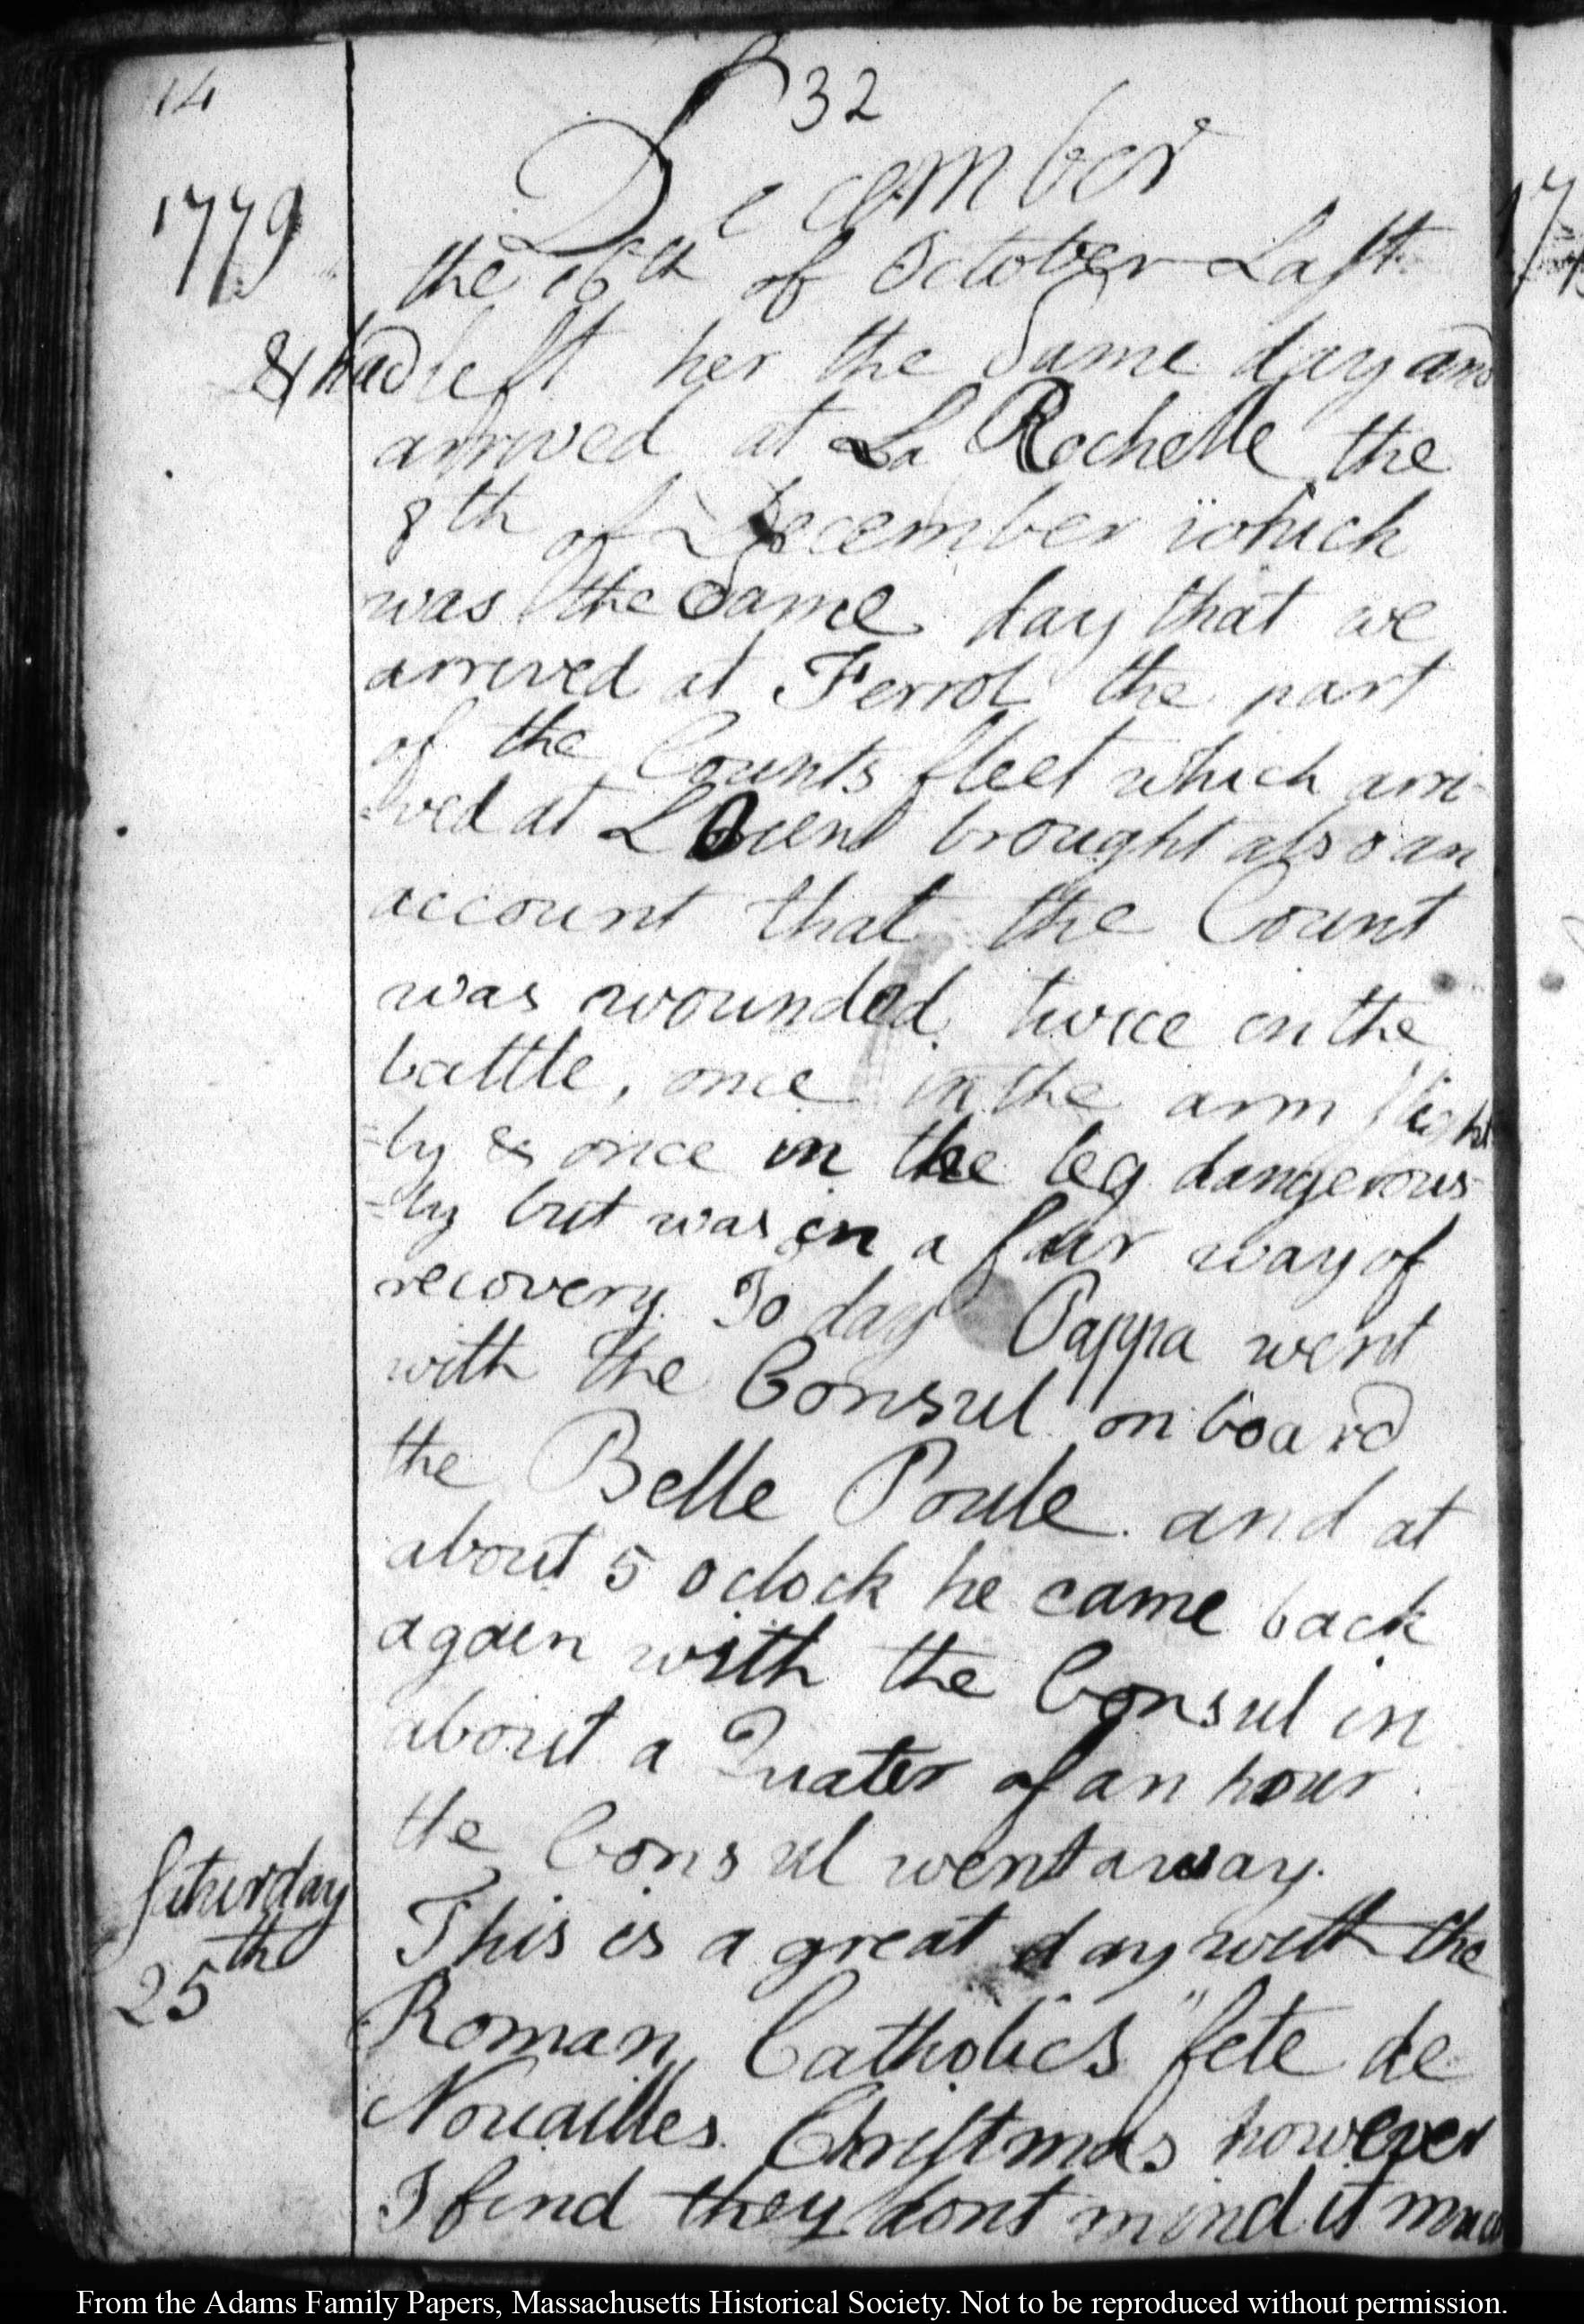 14
32
1779
December
the 16th of October Last
& had left her the Same day and
arrived at La Rochelle the
8th of December which
was the Same day that we
arrived at Ferrol the part
of the Counts fleet which arri-
=ved at L Orient brought also an
account that the Count
was wounded twice in the
battle, once in the arm slight
=ly & once in the leg dangerous
=ly but was in a fair way of
recovery. To day Pappa went
with the Consul on board
the Belle Poule and at
about 5 oclock he came back
again with the Consul in
about a Quater of an hour
the Consul went away.
Saturday
25th
This is a great day with the
Roman Catholics "fete de
Nouailles Christmas however
I find they dont mind it much
From the Adams Family Papers, Massachusetts Historical Society. Not to be reproduced without permission.